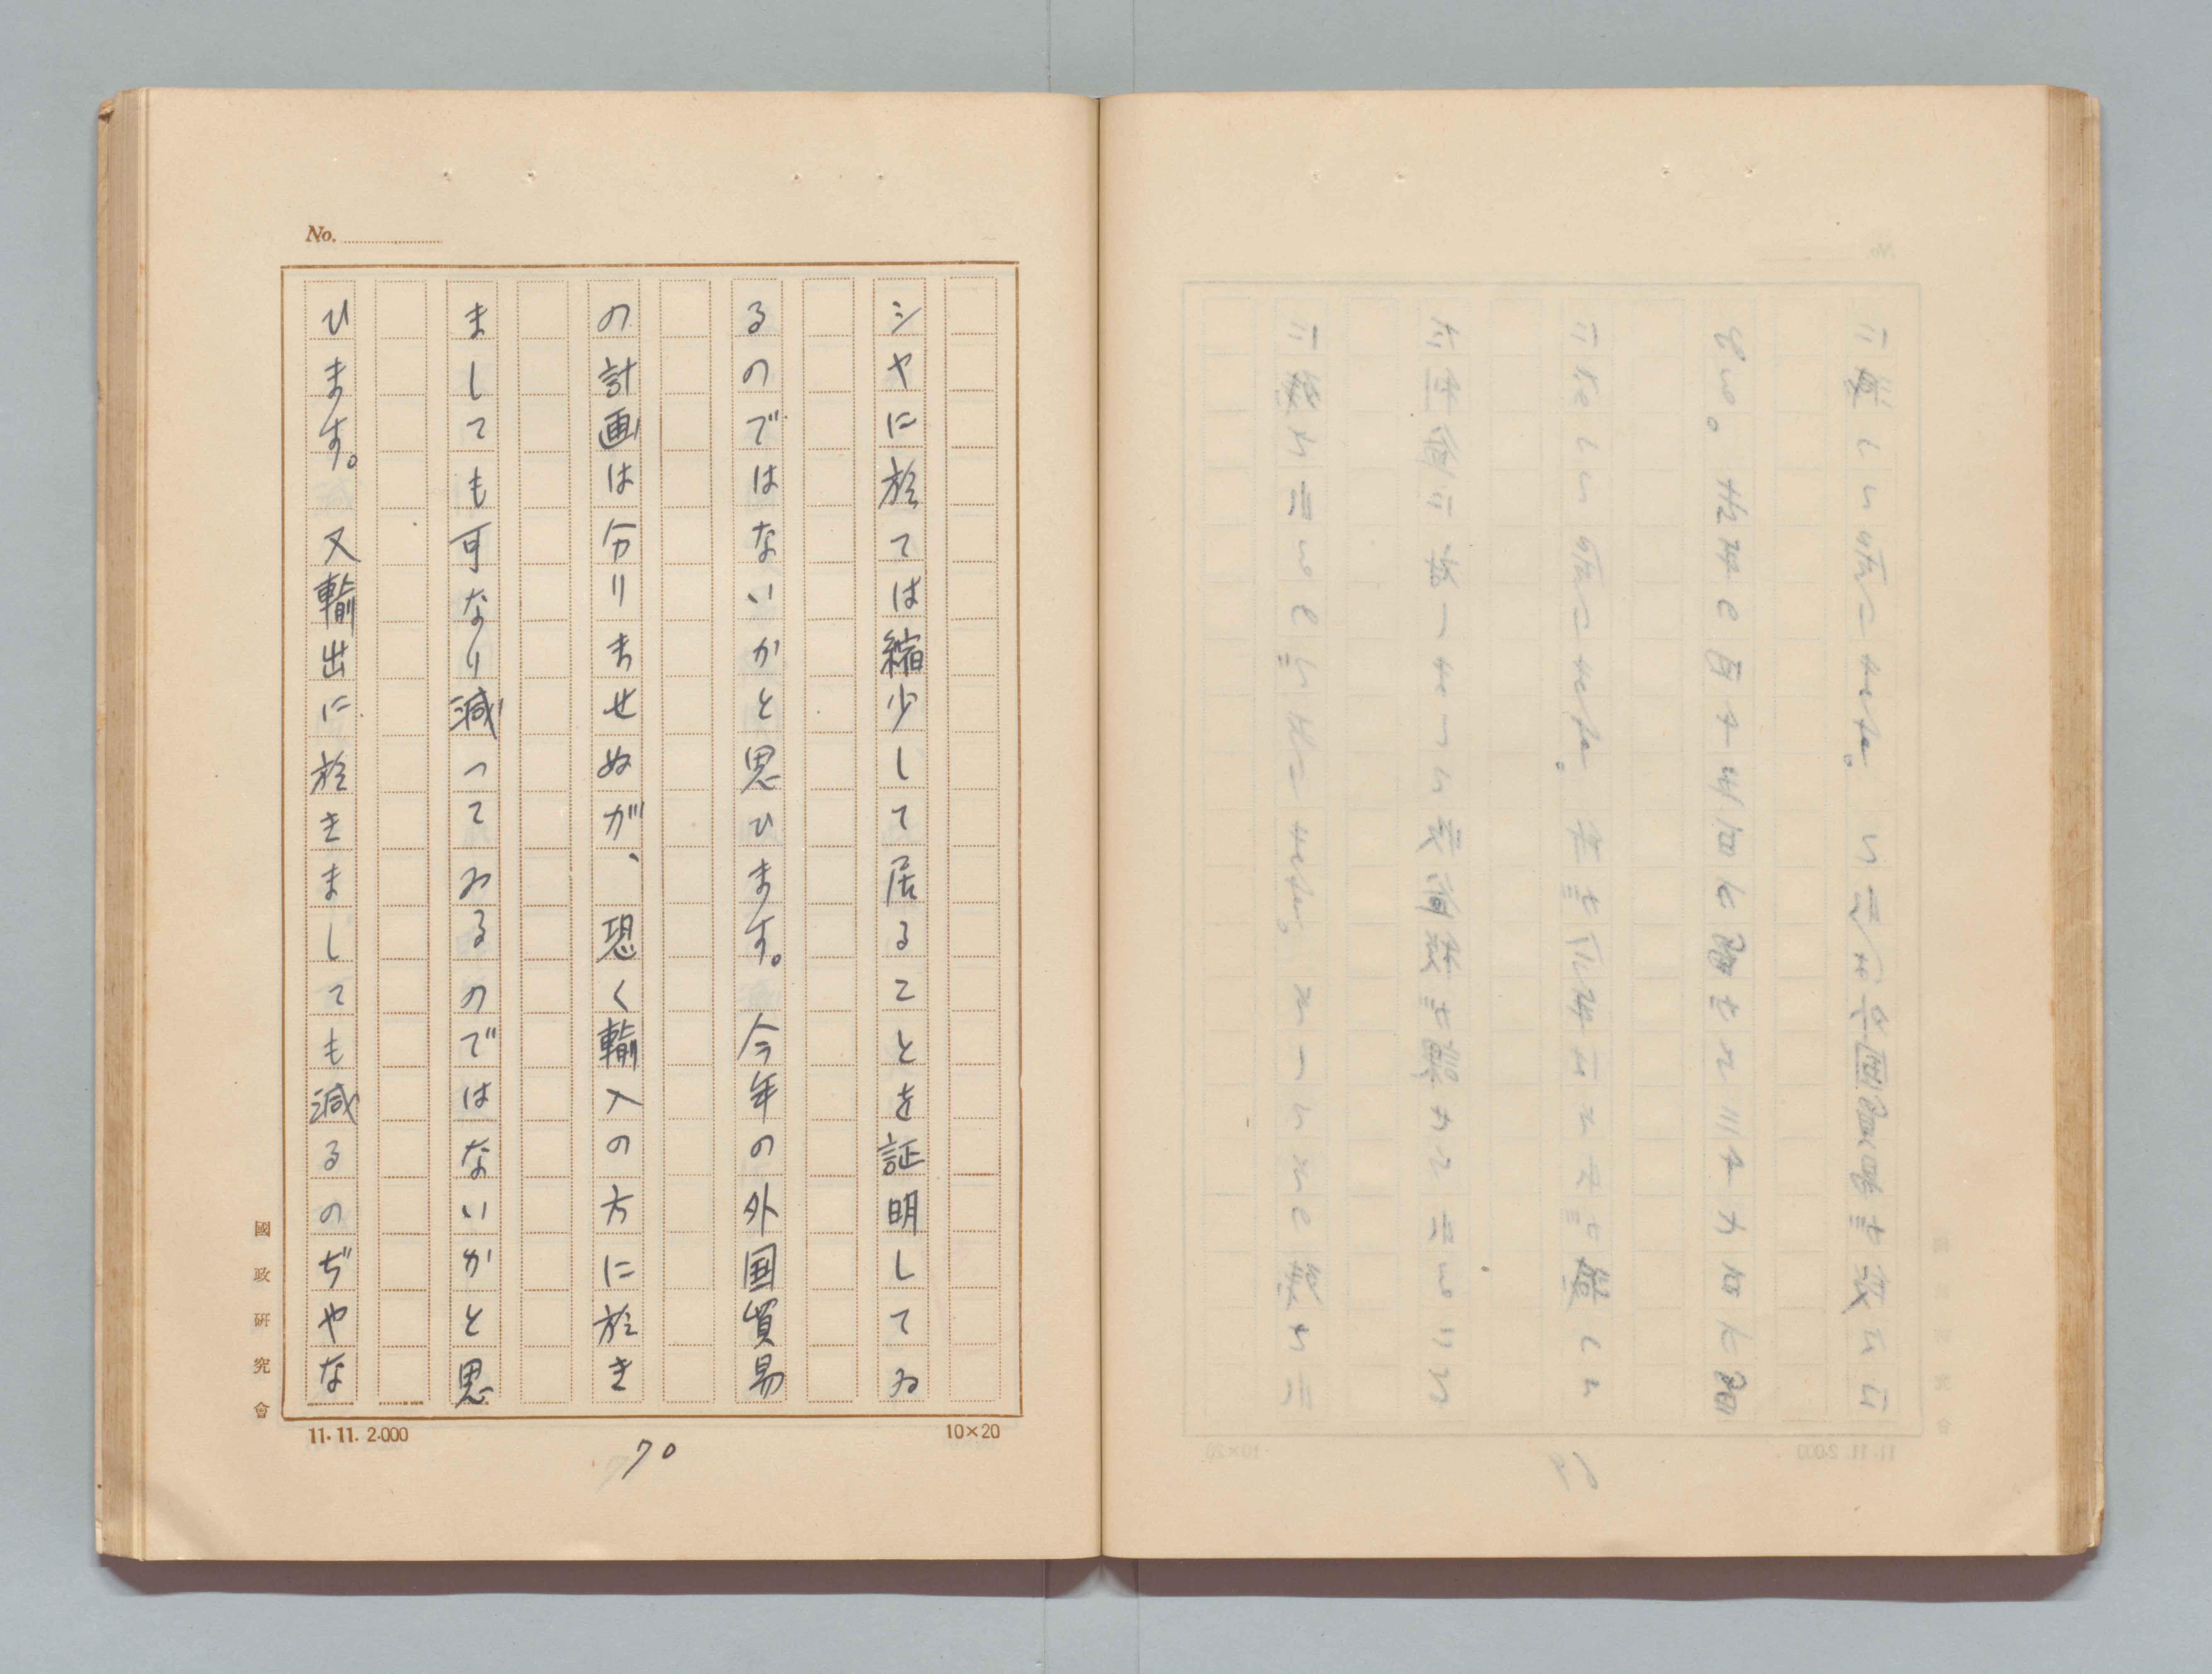 No.
シヤに於ては縮少して居ることを証明してゐ
るのではないかと思ひます。今年の外国貿易
の計画は分りませぬが、恐く輸入の方に於き
ましても可なり減つてゐるのではないかと思
ひます。又輸出に於きましても減るのぢやな
國政研究會
11.11.2.000
10×20
70